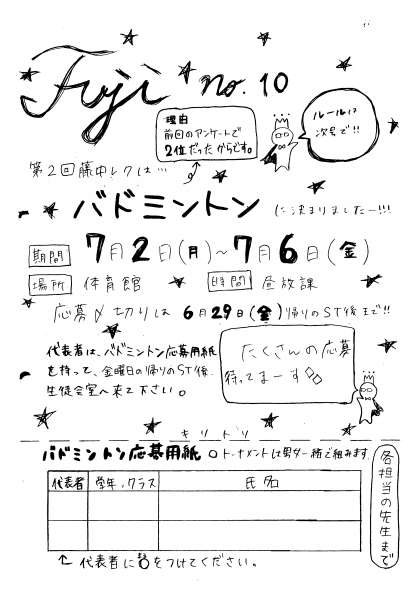 Fuji no.10
理由
前回のアンケートで
2位だったからです。
ルールは
次号で!!
第2回藤中レクは…
バドミントン に決まりましたー!!!
期間 7月2日(月)～7月6日(金)
場所 体育館 時間 昼放課
応募〆切りは 6月29日(金)帰りのST後まで!!
代表者は、バドミントン応募用紙
を持って、金曜日の帰りのST後、
生徒会室へ来て下さい。
たくさんの応募
待ってまーす
キリトリ
バドミントン応募用紙 ○トーナメントは男女一緒で組みます
代表者 学年、クラス 氏名
各担当の先生まで
↑代表者に をつけてください。